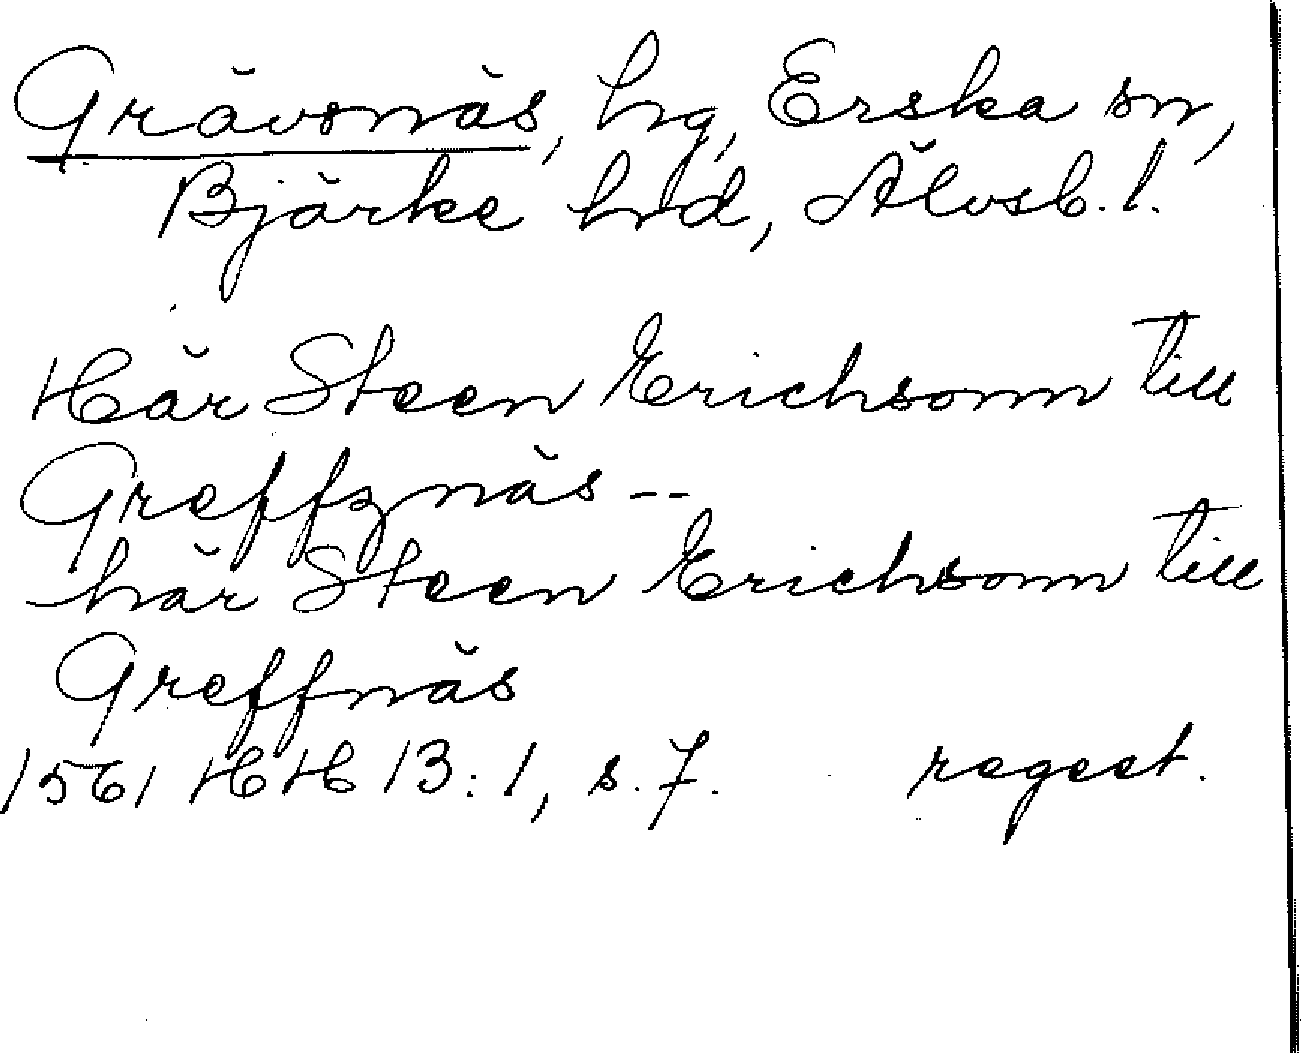 Grävsnäs, hg, Erska sn,
Bjärke hrd, Älvsb. l.
Här Steen Erichsonn till
Greffznäs --
här Steen Erichsonn till
Greffnäs
1561 HH 13:1, s. 7. regest.